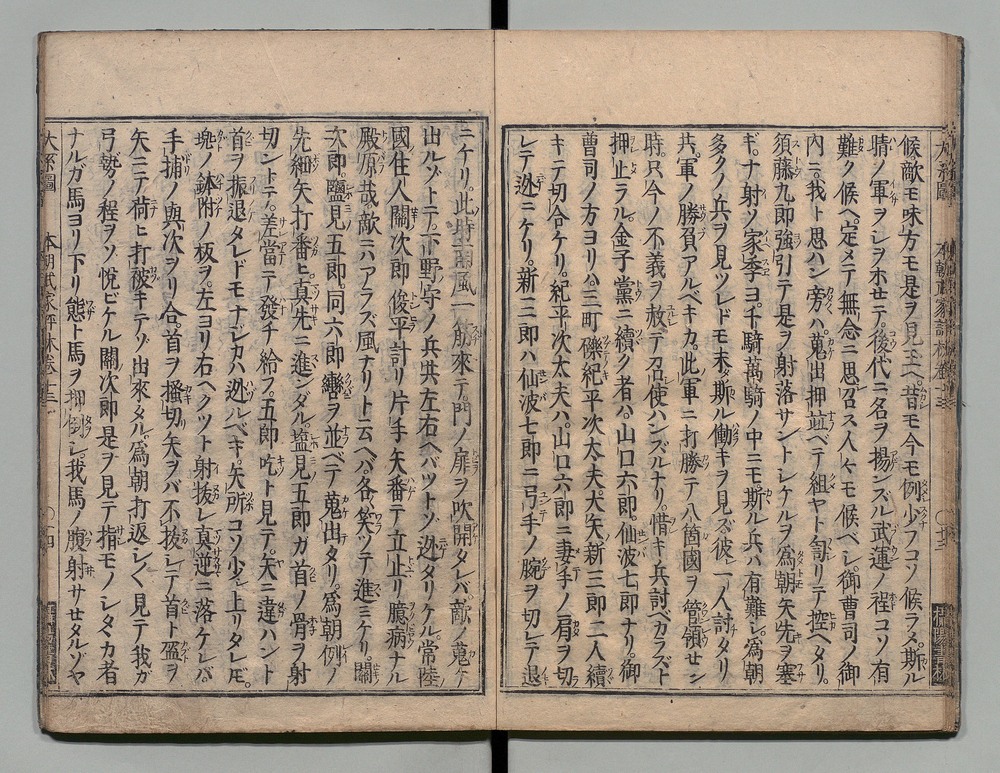 候敵モ味方モ是ヲ見玉ヘ昔モ今モ例少フコソ候ラメ斯ル
晴ノ軍ヲシヲホセテ後代ニ名ヲ揚ンズル武運ノ程コソ有
難ク候ヘ定メテ無念ニ思召ス人々モ候ベシ御曹司ノ御
内ニ我ト思ハン旁ハ蒐出押並ベテ組ヤト訇リテ控ヘタリ
須藤九郎強引テ是ヲ射落サントシケルヲ為朝矢先ヲ塞
ギナ射ソ家季ヨ千騎萬騎ノ中ニモ斯ル兵ハ有難シ為朝
多クノ兵ヲ見ツレドモ未斯ル働キヲ見ズ彼一人討タリ
共軍ノ勝負アルベキカ此軍ニ打勝テ八箇國ヲ管領セン
時只今ノ不義ヲ放テ召使ハンズルナリ惜キ兵討ベカラズト
押止ラル金子黨ニ續ク者ハ山口六郎仙波七郎ナリ御
曹司ノ方ヨリハ三町礫紀平次太夫大矢新三郎二人續
キテ切合ケリ紀平次太夫ハ山口六郎ニ妻手ノ肩ヲ切
レテ迯ニケリ新三郎ハ仙波七郎ニ弓手ノ腕ヲ切レテ退
ニケリ此時南風一筋來テ門ノ扉ヲ吹開タレバ敵ノ蒐
出ルゾトテ下野守ノ兵共左右ヘバットゾ迯タリケル常陸
國住人關次郎俊平計リ片手矢番テ立止リ臆病ナル
殿原哉敵ニハアラズ風ナリト云ヘバ各笑ツテ進ミケリ關
次郎鹽見五郎同六郎轡ヲ並ベテ蒐出タリ為朝例ノ
先細矢打番ヒ真先ニ進ンダル塩見五郎ガ首ノ骨ヲ射
切ントテ差當テ發チ給フ五郎吃ト見テ矢ニ違ハント
首ヲ振退タレドモナジカハ迯ルベキ矢所コソ少シ上リタレ𪜈
塊ノ鉢附ノ板ヲ左ヨリ右ヘクツト射抜レ真逆ニ落ケレバ
手捕ノ與次ヲリ合首ヲ搔切矢ヲバ不抜シテ首ト盔ヲ
矢ニテ荷ヒ打被キテゾ出來タル為朝打返シ〱見テ我ガ
弓勢ノ程ヲゾ悅ビケル關次郎是ヲ見テ指モノシタヽカ者
ナルガ馬ヨリ下リ態ト馬ヲ押倒シ我馬ノ腹射サセタルゾヤ
大系圖 本朝武家評林卷十三 〇十四